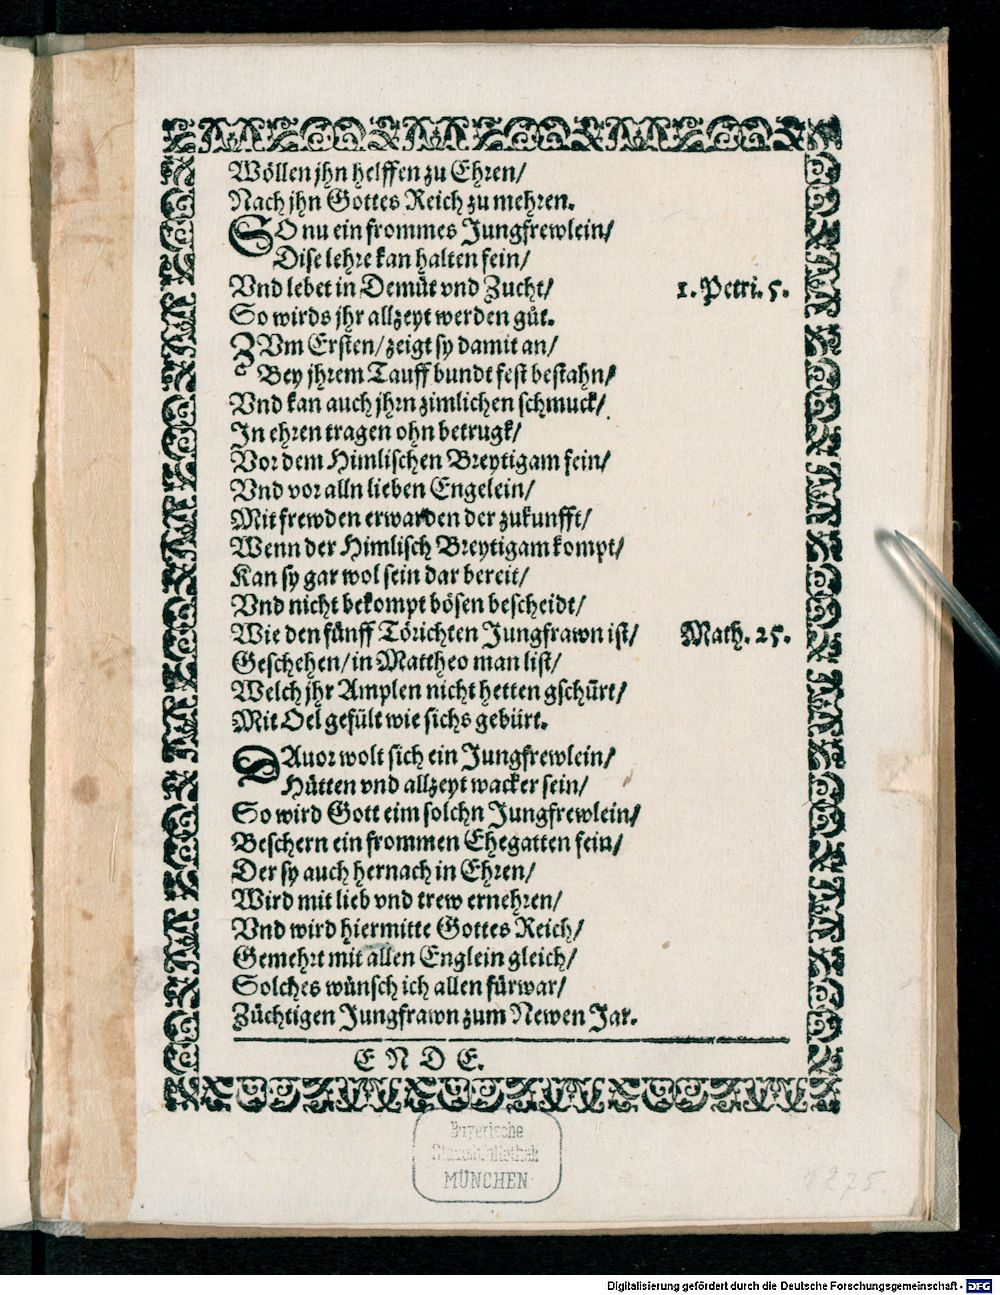 Wöllen jhn helffen zu Ehren/
Nach jhn Gottes Reich zu mehren.
SO nu ein frommes Jungfrewlein/
Dise lehre kan halten fein/
Vnd lebet in Demůt vnd Zucht/ 1. Petri. 5.
So wirds jhr allzeyt werden gůt.
ZVm Ersten/ zeigt sy damit an/
Bey jhrem Tauff bundt fest bestahn/
Vnd kan auch jhrn zimlichen schmuck/
In ehren tragen ohn betrugk/
Vor dem Himlischen Breytigam fein/
Vnd vor alln lieben Engelein/
Mit frewden erwarden der zukunfft/
Wenn der Himlisch Breytigam kompt/
Kan sy gar wol sein dar bereit/
Vnd nicht bekompt bösen bescheidt/
Wie den fünff Törichten Jungfrawn ist/ Math. 25.
Geschehen/ in Mattheo man list/
Welch jhr Amplen nicht hetten gschürt/
Mit Oel gefült wie sichs gebürt.
DAuor wolt sich ein Jungfrewlein/
Hütten vnd allzeyt wacker sein/
So wird Gott eim solchn Jungfrewlein/
Beschern ein frommen Ehegatten fein/
Der sy auch hernach in Ehren/
Wird mit lieb vnd trew ernehren/
Vnd wird hiermitte Gottes Reich/
Gemehrt mit allen Englein gleich/
Solches wünsch ich allen fürwar/
Züchtigen Jungfrawn zum Newen Jar.
E N D E.
Bayerische
Staatsbibliothek
MÜNCHEN
1275
Digitalisierung gefördert durch die Deutsche Forschungsgemeinschaft - DFG